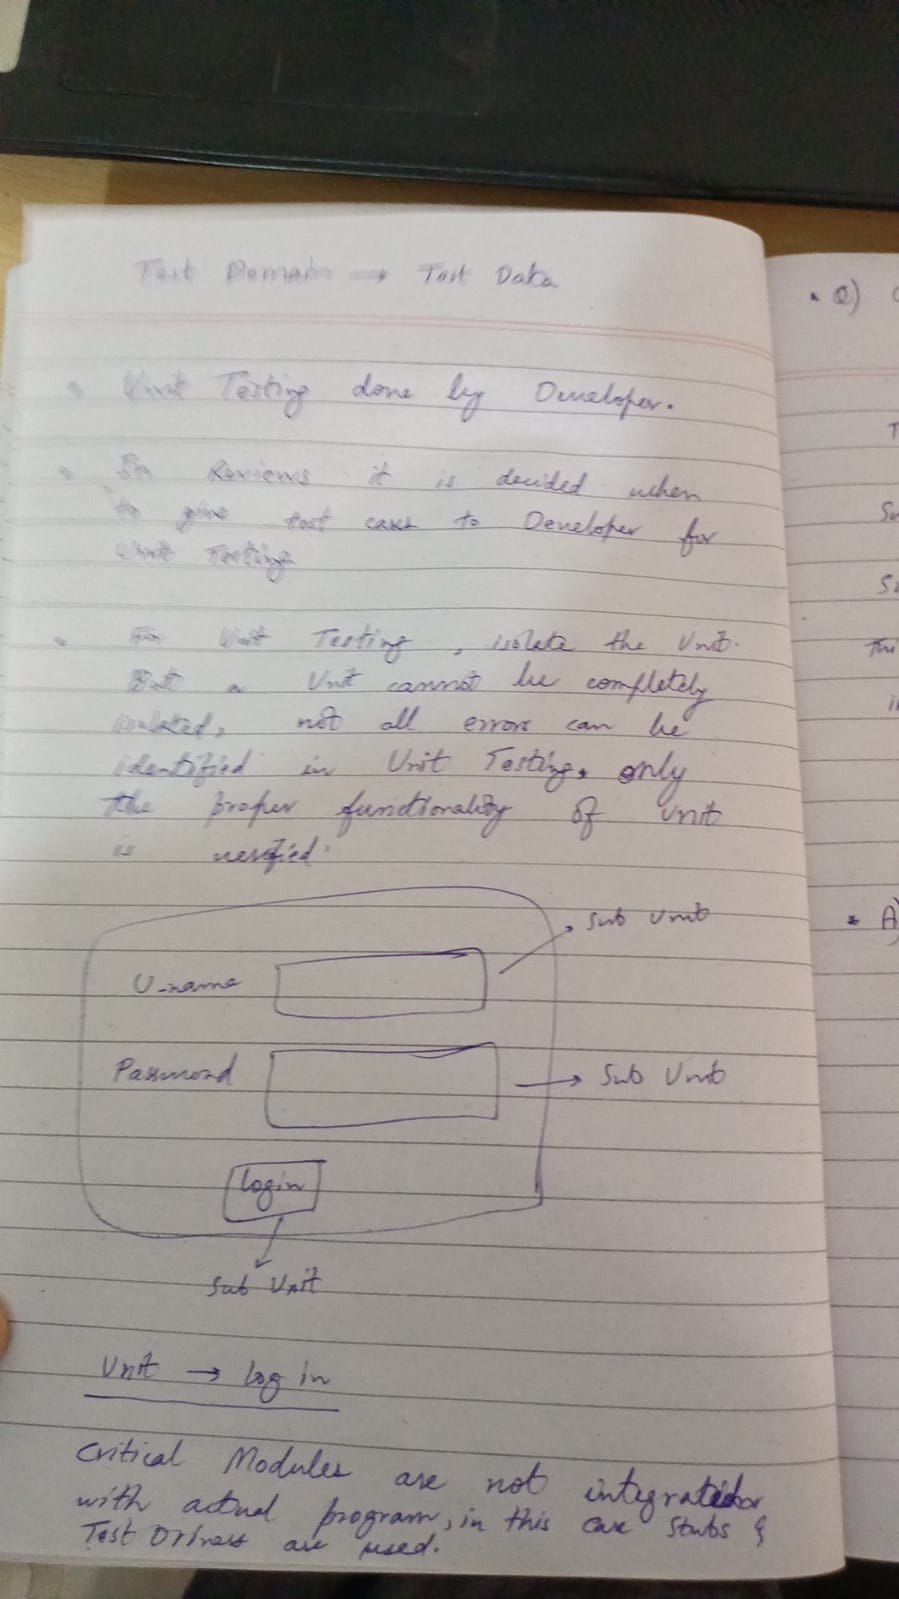 Test Domain → Test Data
• Unit Testing done by Developer.
• In Reviews it is decided when
to give test cases to Developer for
Unit Testing
• For Unit Testing, isolate the Unit.
But a Unit cannot be completely
isolated, not all errors can be
identified in Unit Testing, only
the proper functionality of unit
is verified.
Sub Unit
U-name
Password
Sub Unit
Login
Sub Unit
Unit → log in
Critical Modules are not
with actual program, in this case stubs &
Test Drivers are used.
• Q)
* A)